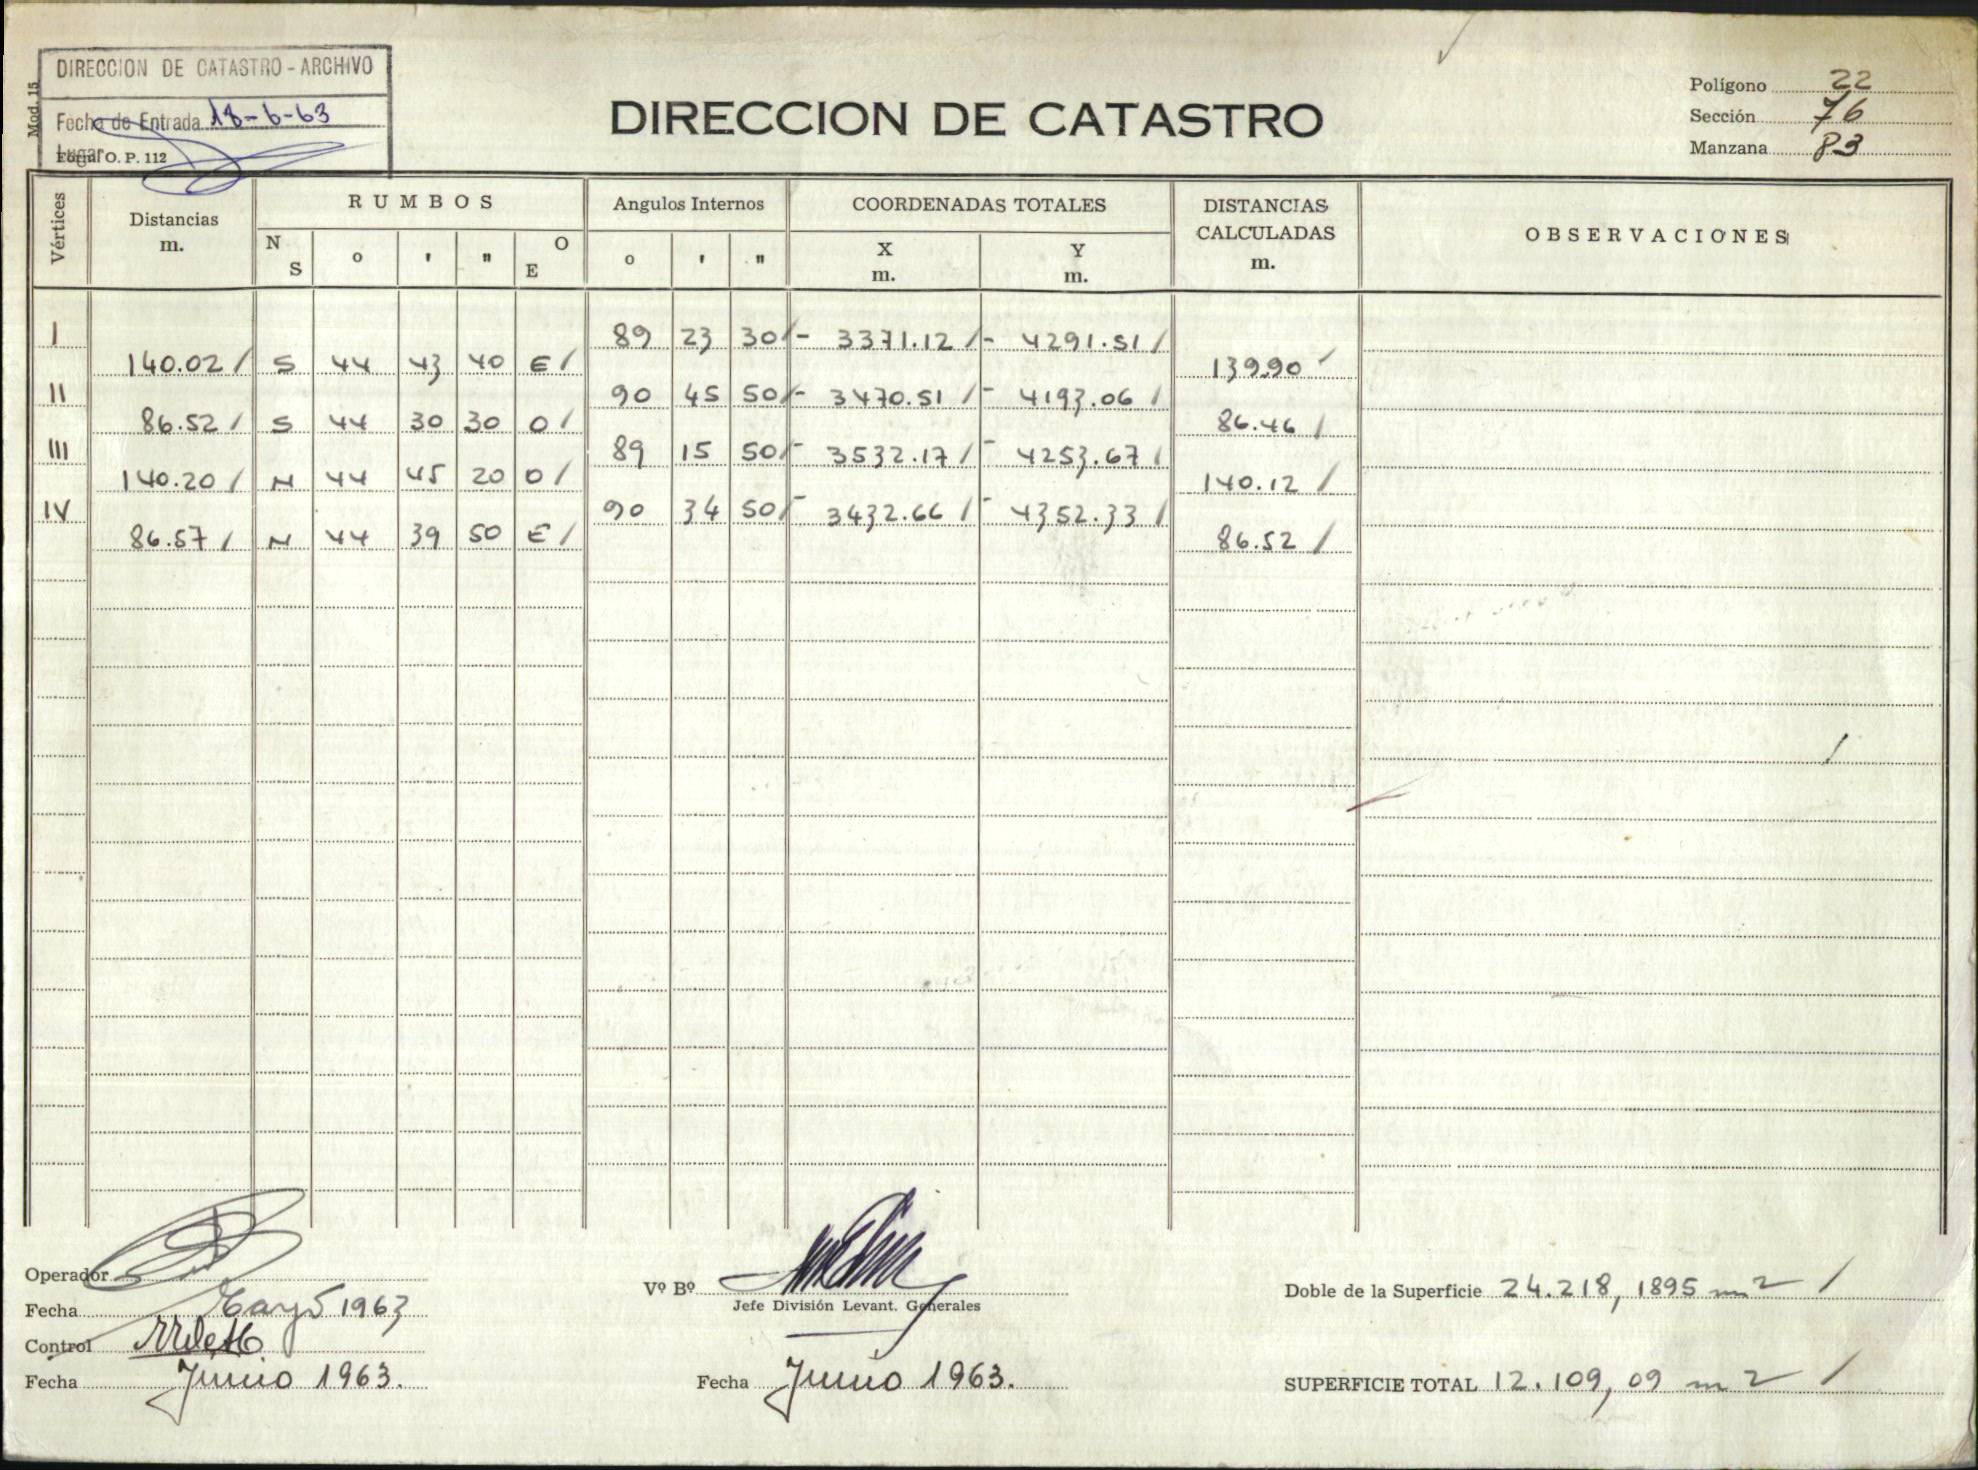 DIRECCION DE CATASTRO - ARCHIVO
Fecha de Entrada 18-6-63
Lugar
Form. O. P. 112
Mod. 15
DIRECCION DE CATASTRO
Polígono 22
Sección 76
Manzana 83
Vértices
Distancias
m.
RUMBOS
N S ° ' " O E
Angulos Internos
° ' "
COORDENADAS TOTALES
X
m.
Y
m.
DISTANCIAS
CALCULADAS
m.
OBSERVACIONES
I 89 23 30 / - 3371.12 / - 4291.51 /
140.02 / S 44 43 40 E / 139.90 /
II 90 45 50 / - 3470.51 / - 4193.06 /
86.52 / S 44 30 30 O / 86.46 /
III 89 15 50 / - 3532.17 / - 4253.67 /
140.20 / N 44 45 20 O / 140.12 /
IV 90 34 50 / - 3432.66 / - 4352.33 /
86.57 / N 44 39 50 E / 86.52 /
Operador
Fecha Mayo 1963
Control
Fecha Junio 1963.
Vº Bº
Jefe División Levant. Generales
Fecha Junio 1963.
Doble de la Superficie 24.218,1895 m2 /
SUPERFICIE TOTAL 12.109,09 m2 /